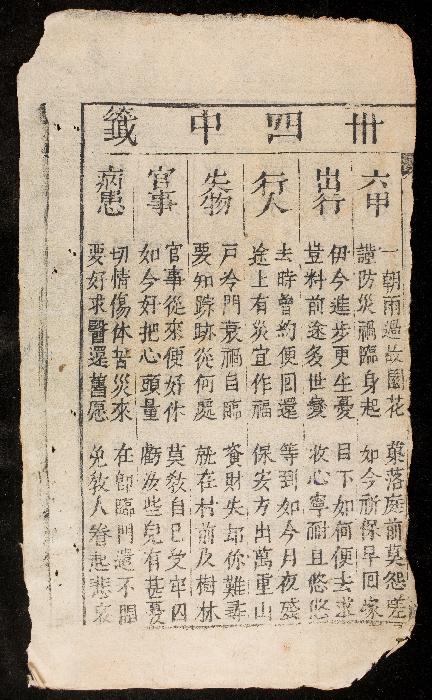 卅四中籤
六甲
一朝雨過故園花 葉落庭前莫怨嗟
謹防災禍臨身起 如今祈保早回家
出行
伊今進步更生憂 目下如何便去遊
豈料前途多世變 收心寧耐且悠悠
行人
去時曾約便回還 等到如今月夜殘
途上有災宜作福 保安方出萬重山
失物
戸冷門衰禍自臨 資財失却你難尋
要知踪跡從何處 就在村前及樹林
官事
官事從來便好休 莫教自己受牢囚
如今好把心頭量 虧汝些兒有甚憂
病患
一切情傷休苦災來 在即臨門還不開
要好求醫還舊愿 免教人眷起悲哀